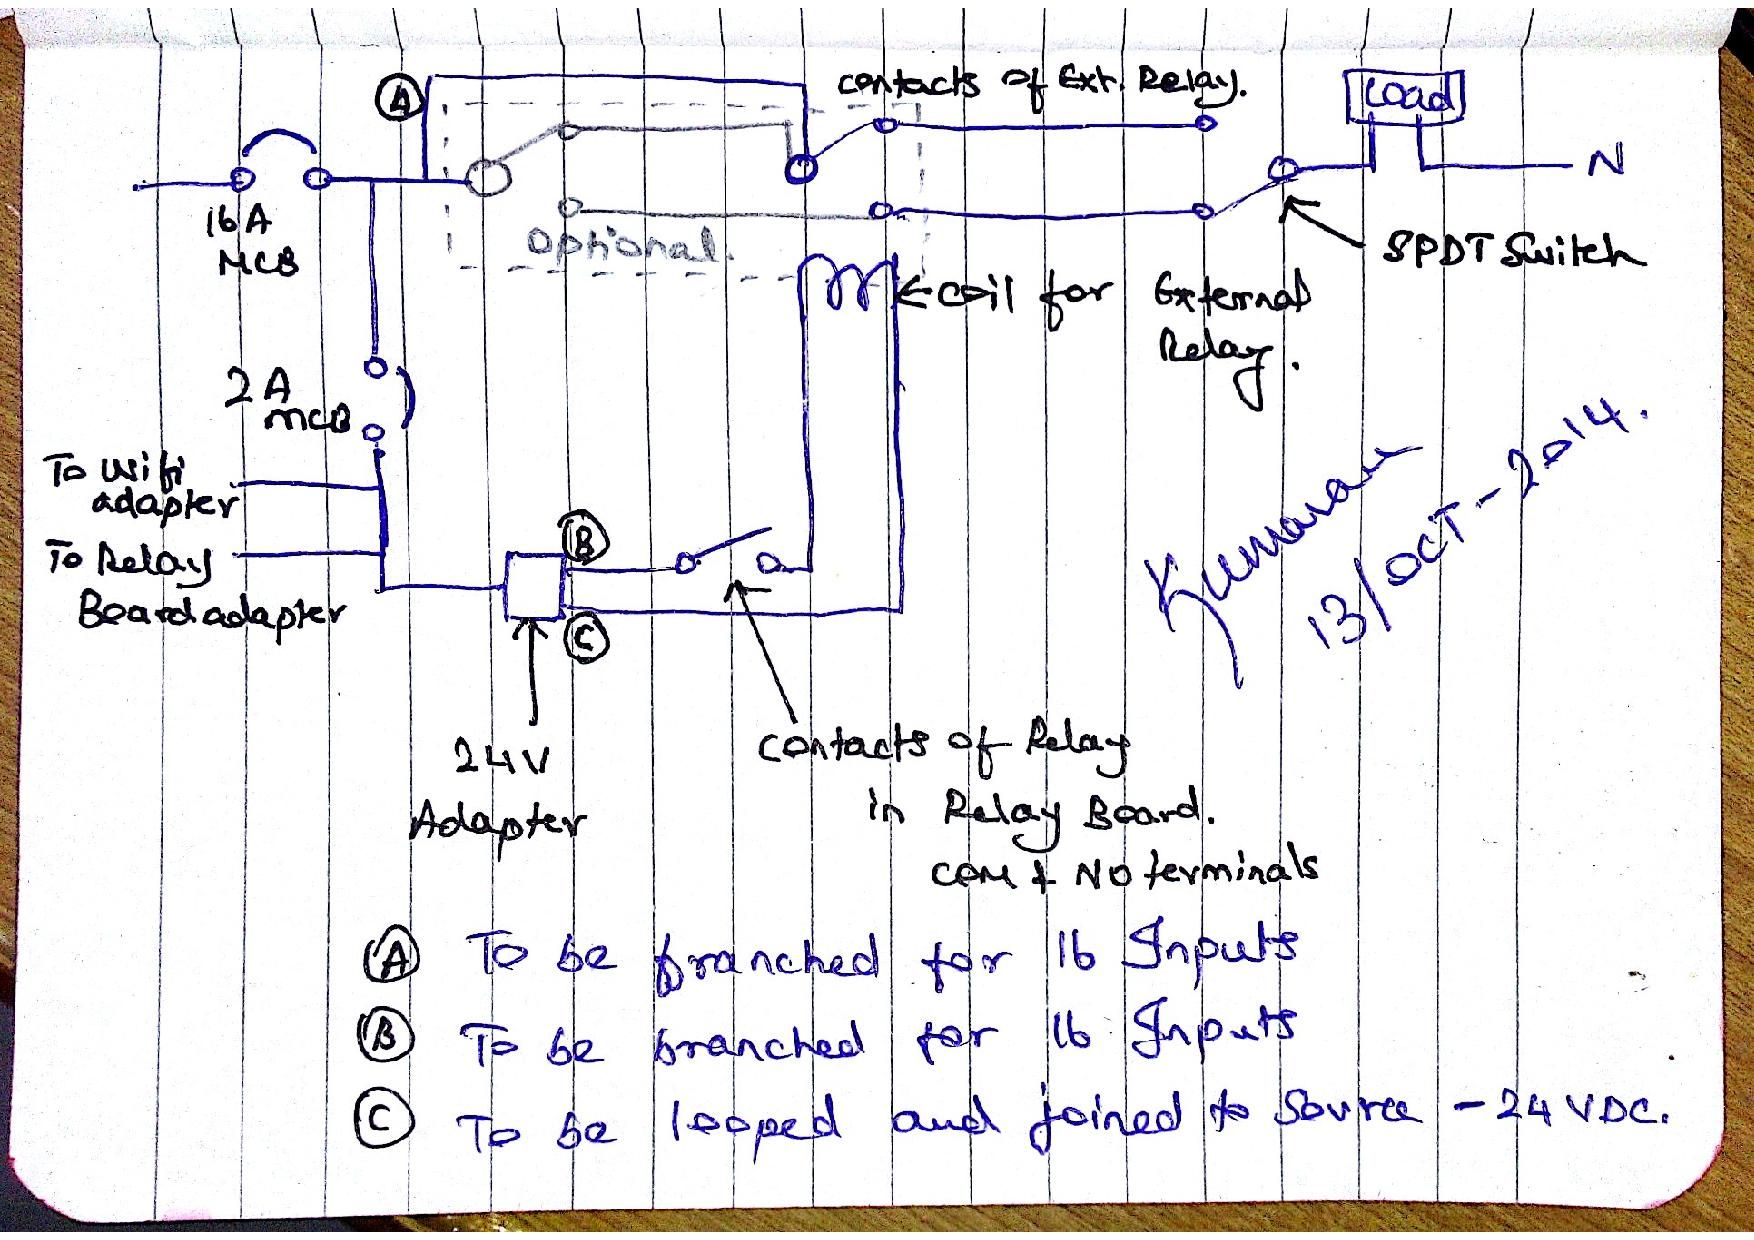 A
contacts of Ext. Relay.
Load
N
16A
MCB
Optional.
SPDT Switch
coil for External
Relay.
2A
MCB
To Wifi
adapter
To Relay
Board adapter
B
C
Kumaran
13/OCT-2014.
24V
Adapter
contacts of Relay
in Relay Board.
COM & NO terminals
A To be branched for 16 Inputs
B To be branched for 16 Inputs
C To be looped and joined to Source - 24 VDC.